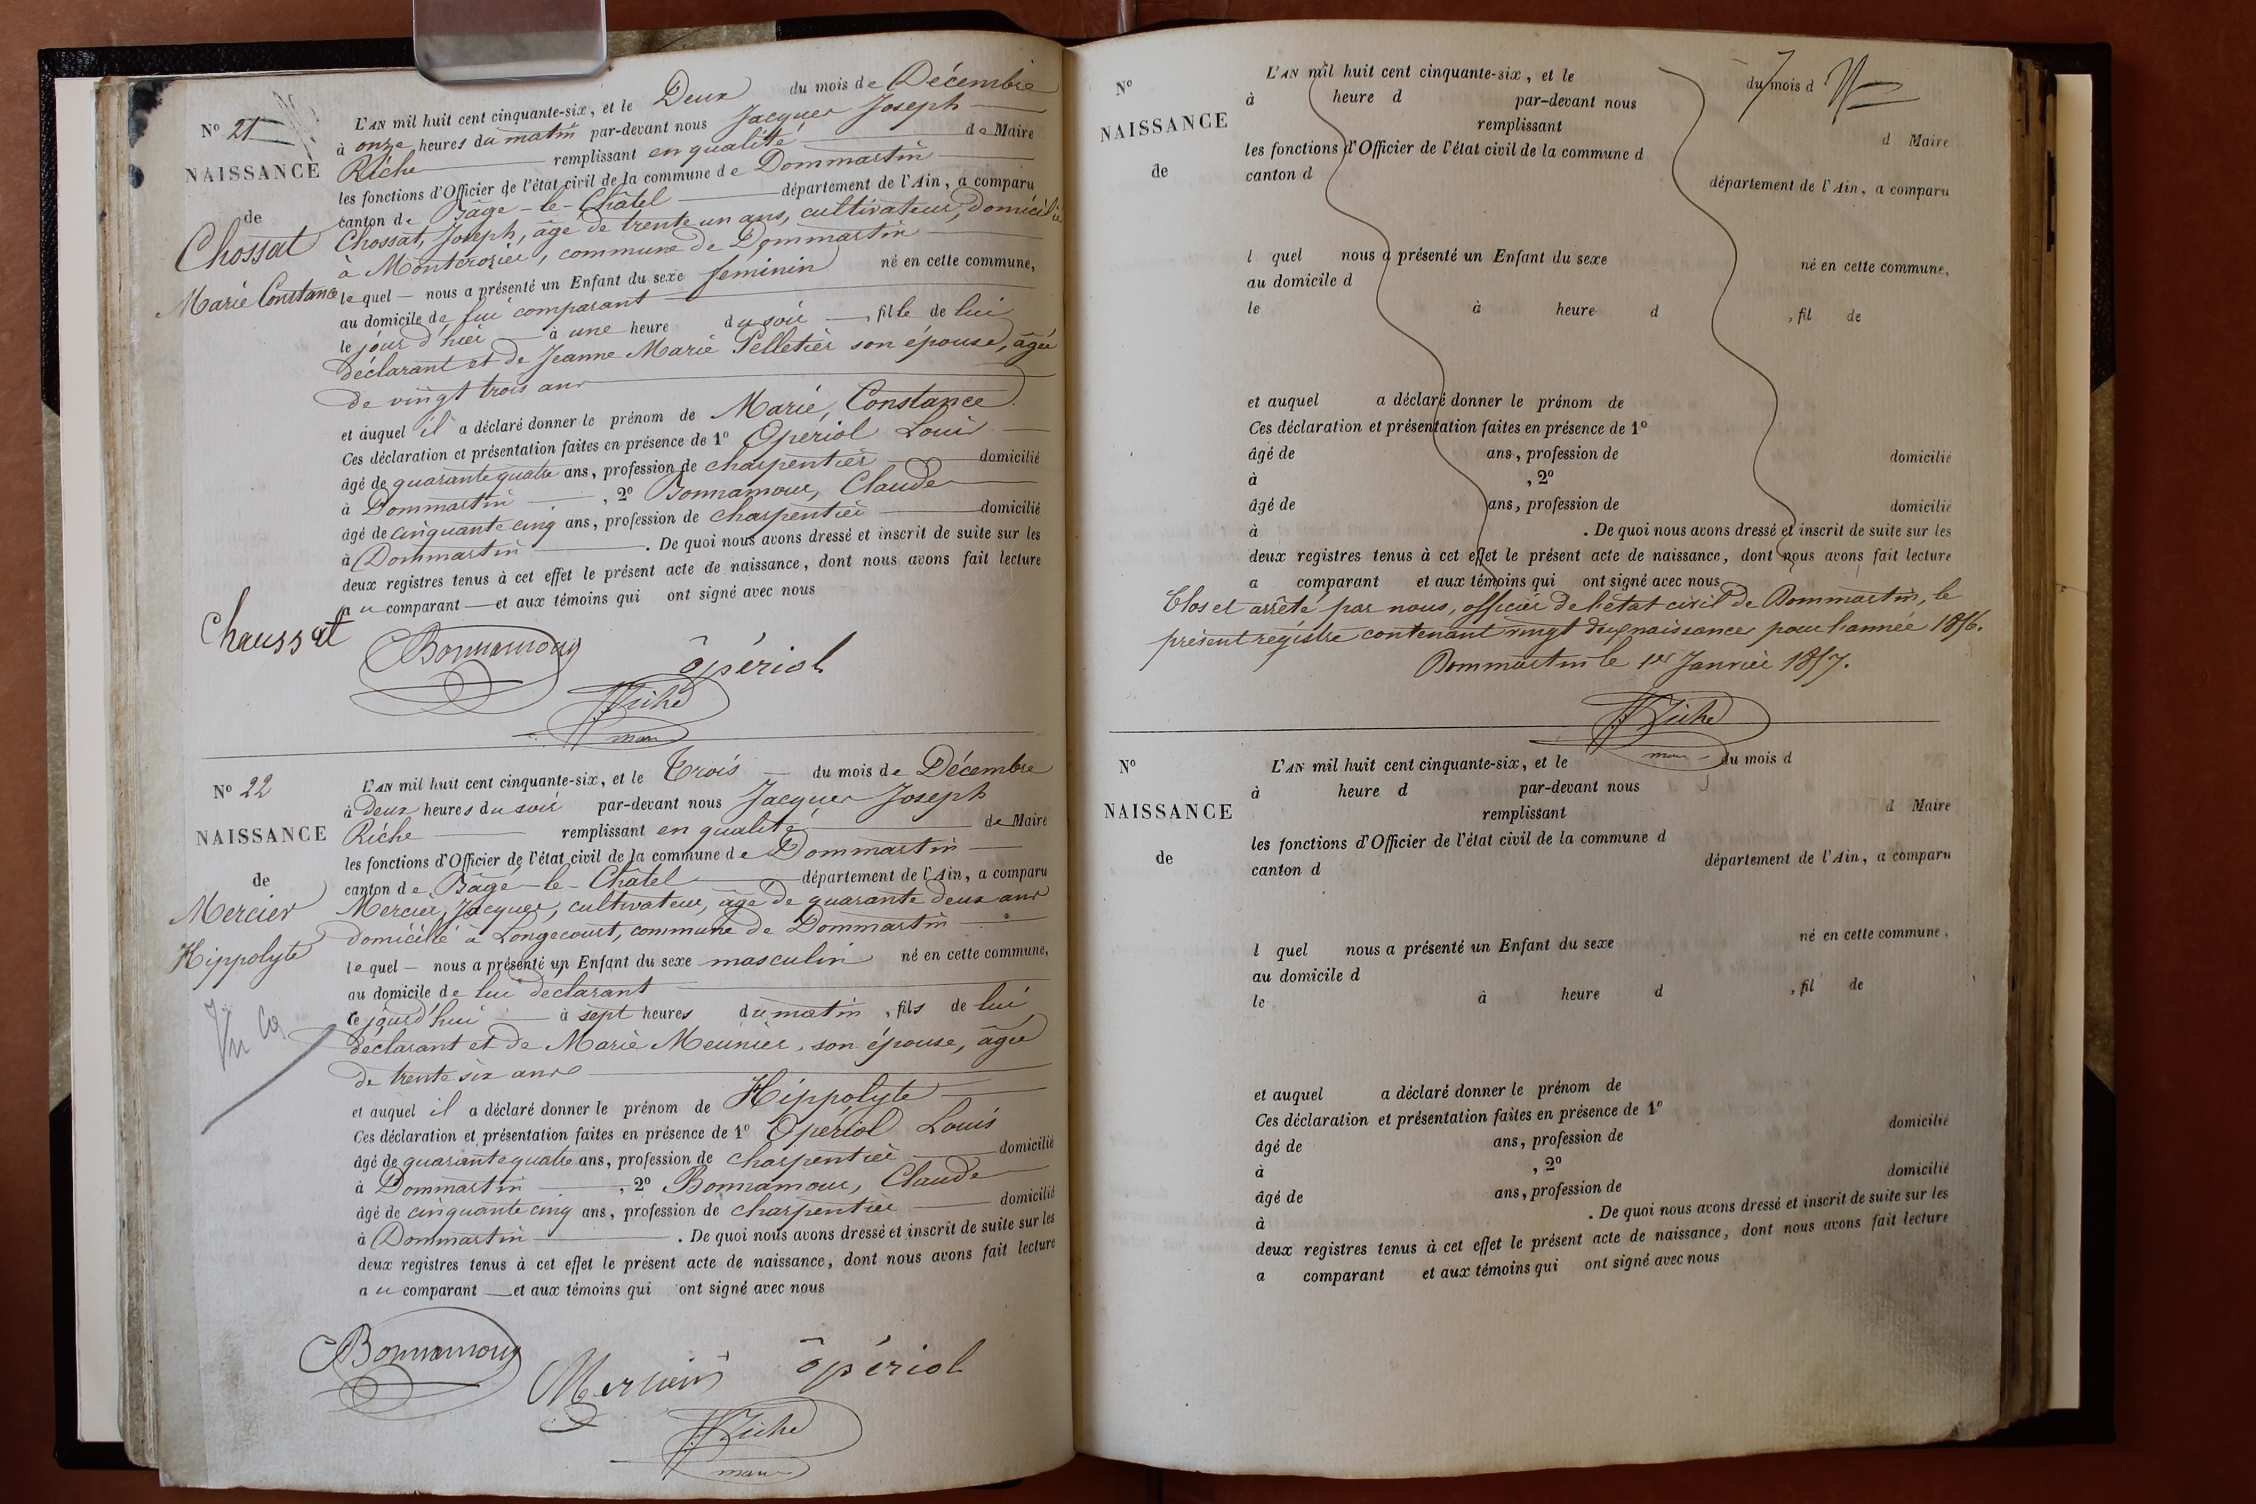 N° 21
NAISSANCE
de
Chossat
Marie Constance
L'AN mil huit cent cinquante-six, et le Deux du mois de Décembre
à onze heures du matin par-devant nous Jacques Joseph
Riche remplissant en qualité de Maire
les fonctions d'Officier de l'état civil de la commune de Dommartin
canton de Bâgé-le-Châtel département de l'Ain, a comparu
Chossat, Joseph, âgé de trente un ans, cultivateur, domicilié
à Montcrozier, commune de Dommartin
lequel nous a présenté un Enfant du sexe feminin né en cette commune,
au domicile de lui comparant
le jour d'hier à une heure du soir, fille de lui
déclarant et de Jeanne Marie Pelletier son épouse, âgée
de vingt trois ans
et auquel il a déclaré donner le prénom de Marie, Constance
Ces déclaration et présentation faites en présence de 1° Opériol Louis
âgé de quarante quatre ans, profession de charpentier domicilié
à Dommartin, 2° Bonnamour, Claude
âgé de cinquante cinq ans, profession de charpentier domicilié
à Dommartin. De quoi nous avons dressé et inscrit de suite sur les
deux registres tenus à cet effet le présent acte de naissance, dont nous avons fait lecture
au comparant et aux témoins qui ont signé avec nous
Chaussat
Bonnamour
ôpériol
Riche
maire
N° 22
NAISSANCE
de
Mercier
Hippolyte
L'AN mil huit cent cinquante-six, et le Trois du mois de Décembre
à Deux heures du soir par-devant nous Jacques Joseph
Riche remplissant en qualité de Maire
les fonctions d'Officier de l'état civil de la commune de Dommartin
canton de Bâgé-le-Châtel département de l'Ain, a comparu
Mercier, Jacques, cultivateur, âgé de quarante deux ans
domicilié à Longecourt, commune de Dommartin
lequel nous a présenté un Enfant du sexe masculin né en cette commune,
au domicile de lui déclarant
ce jourd'hui à sept heures du matin, fils de lui
déclarant et de Marie Meunier, son épouse, âgée
de trente six ans
et auquel il a déclaré donner le prénom de Hippolyte
Ces déclaration et présentation faites en présence de 1° Opériol Louis
âgé de quarante quatre ans, profession de charpentier domicilié
à Dommartin, 2° Bonnamour, Claude
âgé de cinquante cinq ans, profession de charpentier domicilié
à Dommartin. De quoi nous avons dressé et inscrit de suite sur les
deux registres tenus à cet effet le présent acte de naissance, dont nous avons fait lecture
au comparant et aux témoins qui ont signé avec nous
Bonnamour
Mercier
ôpériol
Riche
maire
N°
NAISSANCE
de
L'AN mil huit cent cinquante-six, et le du mois d
à heure d par-devant nous
remplissant d Maire
les fonctions d'Officier de l'état civil de la commune d
canton d département de l'Ain, a comparu
l quel nous a présenté un Enfant du sexe né en cette commune,
au domicile d
le à heure d , fil de
et auquel a déclaré donner le prénom de
Ces déclaration et présentation faites en présence de 1°
âgé de ans, profession de domicilié
à , 2°
âgé de ans, profession de domicilié
à . De quoi nous avons dressé et inscrit de suite sur les
deux registres tenus à cet effet le présent acte de naissance, dont nous avons fait lecture
a comparant et aux témoins qui ont signé avec nous
Clos et arrêté par nous, officier de l'état civil de Dommartin, le
présent registre contenant vingt deux naissances pour l'année 1856.
Dommartin le 1er Janvier 1857.
Riche
maire
N°
NAISSANCE
de
L'AN mil huit cent cinquante-six, et le du mois d
à heure d par-devant nous
remplissant d Maire
les fonctions d'Officier de l'état civil de la commune d
canton d département de l'Ain, a comparu
l quel nous a présenté un Enfant du sexe né en cette commune,
au domicile d
le à heure d , fil de
et auquel a déclaré donner le prénom de
Ces déclaration et présentation faites en présence de 1°
âgé de ans, profession de domicilié
à , 2°
âgé de ans, profession de domicilié
à . De quoi nous avons dressé et inscrit de suite sur les
deux registres tenus à cet effet le présent acte de naissance, dont nous avons fait lecture
a comparant et aux témoins qui ont signé avec nous